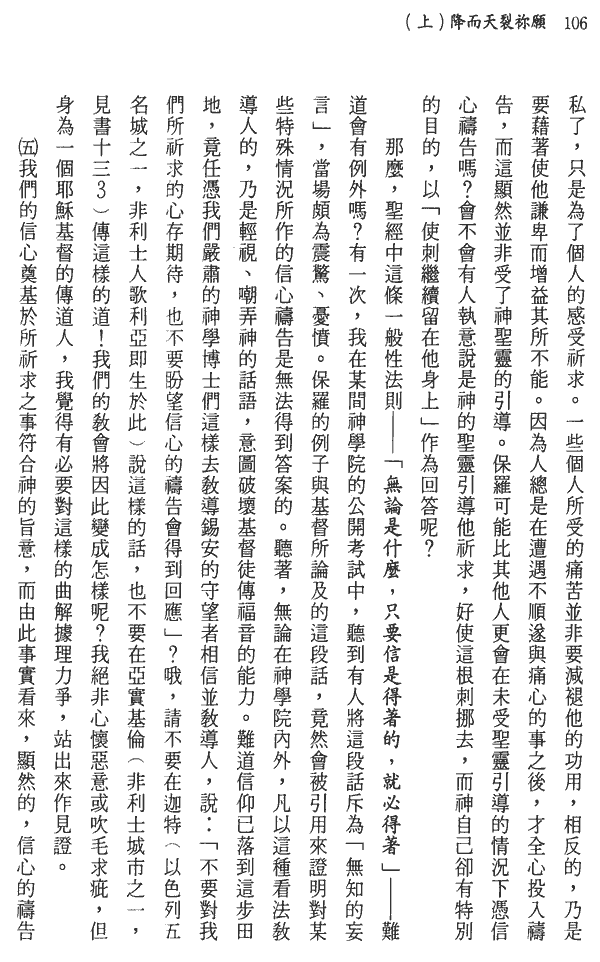 106 願祢裂天而降(上)
私了，只是為了個人的感受祈求。一些個人所受的痛苦並非要減褪他的功用，相反的，乃是
要藉著使他謙卑而增益其所不能。因為人總是在遭遇不順遂與痛心的事之後，才全心投入禱
告，而這顯然並非受了神聖靈的引導。保羅可能比其他人更會在未受聖靈引導的情況下憑信
心禱告嗎？會不會有人執意說是神的聖靈引導他祈求，好使這根刺挪去，而神自己卻有特別
的目的，以「使刺繼續留在他身上」作為回答呢？
那麼，聖經中這條一般性法則——「無論是什麼，只要信是得著的，就必得著」——難
道會有例外嗎？有一次，我在某間神學院的公開考試中，聽到有人將這段話斥為「無知的妄
言」，當場頗為震驚、憂憤。保羅的例子與基督所論及的這段話，竟然會被引用來證明對某
些特殊情況所作的信心禱告是無法得到答案的。聽著，無論在神學院內外，凡以這種看法教
導人的，乃是輕視、嘲弄神的話語，意圖破壞基督徒傳福音的能力。難道信仰已落到這步田
地，竟任憑我們嚴肅的神學博士們這樣去教導錫安的守望者相信並教導人，說：「不要對我
們所祈求的心存期待，也不要盼望信心的禱告會得到回應」？哦，請不要在迦特（以色列五
名城之一，非利士人歌利亞即生於此）說這樣的話，也不要在亞實基倫（非利士城市之一，
見書十三3）傳這樣的道！我們的教會將因此變成怎樣呢？我絕非心懷惡意或吹毛求疵，但
身為一個耶穌基督的傳道人，我覺得有必要對這樣的曲解據理力爭，站出來作見證。
㈤我們的信心奠基於所祈求之事符合神的旨意，而由此事實看來，顯然的，信心的禱告